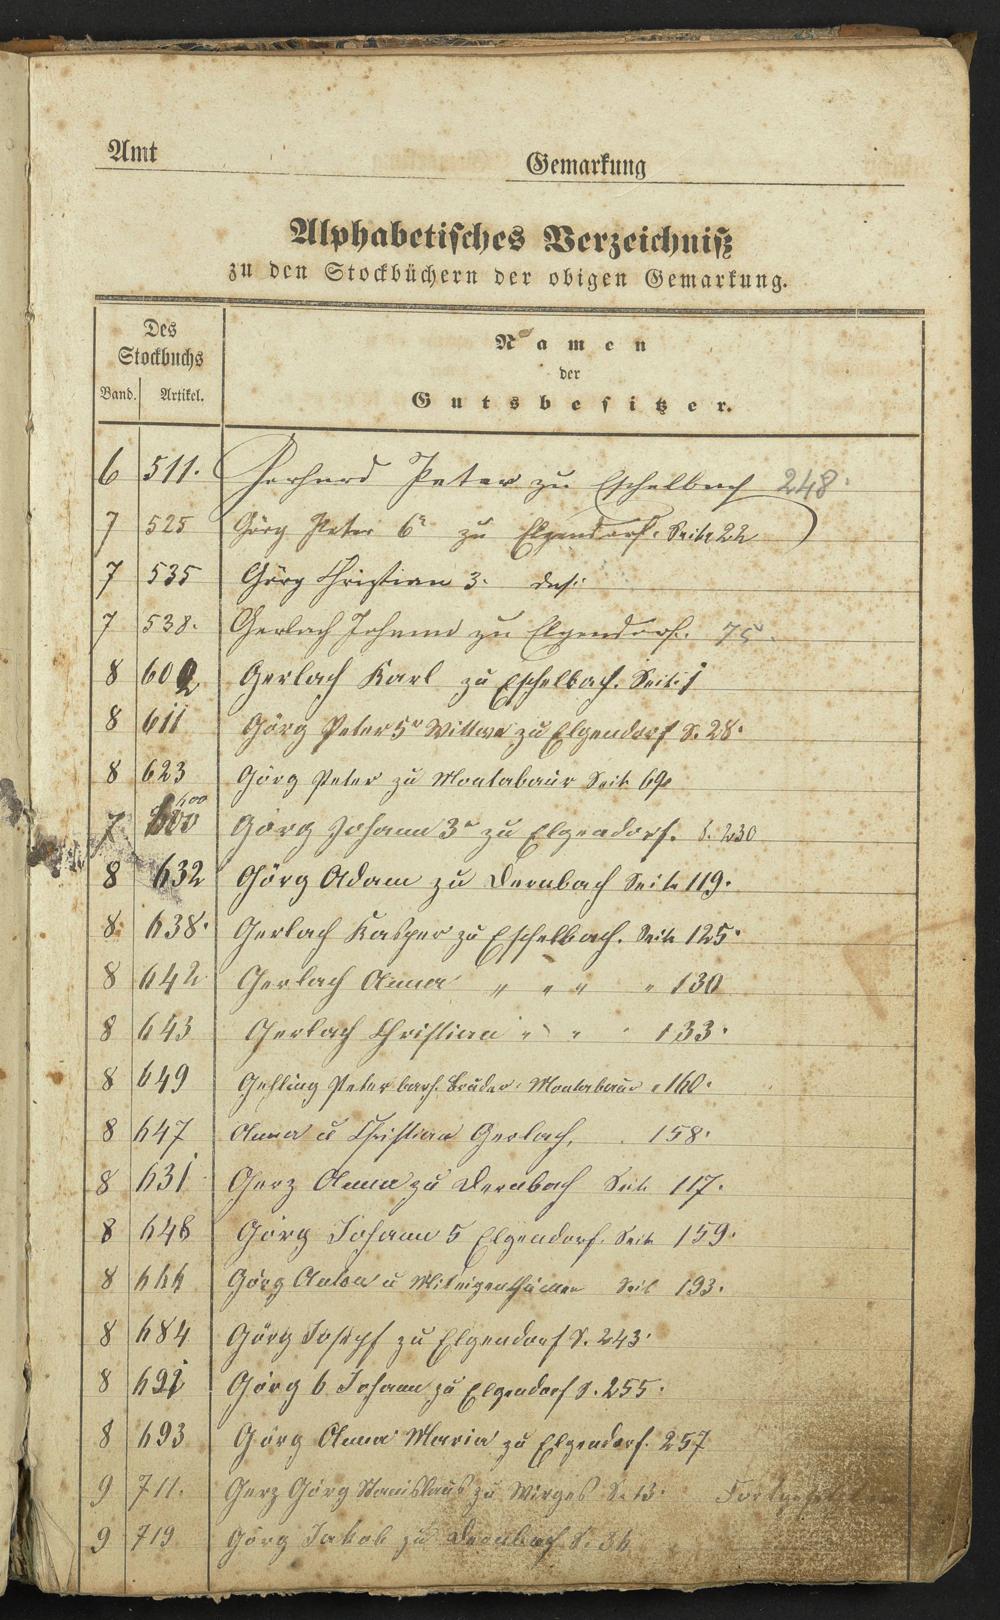 Amt
Gemarkung
Alphabetisches Verzeichniß
zu den Stockbüchern der obigen Gemarkung.
Des
Stockbuchs
Band. Artikel.
Namen
der
Gutsbesitzer.
6 511. Gerhard Peter zu Eschelbach 248.
7 525 Görg Peter 6r zu Elgendorf. Seite 22
7 535 Görg Christian 3. das:
7 538. Gerlach Johann zu Elgendorf. 75.
8 602 Gerlach Karl zu Eschelbach. Seite 1
8 611 Görg Peter 5r Wittwe zu Elgendorf S. 28.
8 623 Görg Peter zu Montabaur Seite 69
7 600 Görg Johann 3r zu Elgendorf. S. 230
8 632 Görg Adam zu Dernbach Seite 119.
8. 638. Gerlach Kasper zu Eschelbach. Seite 125.
8 642 Gerlach Anna " " " " 130
8 643 Gerlach Christian " " " 133.
8 649 Gehling Peter barh. Bruder Montabaur " 160.
8 647 Anna u Christian Gerlach, 158.
8 631 Gerz Anna zu Dernbach Seite 117.
8 648 Görg Johann 5 Elgendorf. Seite 159.
8 666 Görg Anton u Miteigenthümer Seite 193.
8 684 Görg Joseph zu Elgendorf S. 243.
8 692 Görg 6 Johann zu Elgendorf S. 255.
8 693 Görg Anna Maria zu Elgendorf. 257
9 711. Gerz Görg Stanislaus zu Wirges S. 13.
9 719 Görg Jakob zu Dernbach S. 36